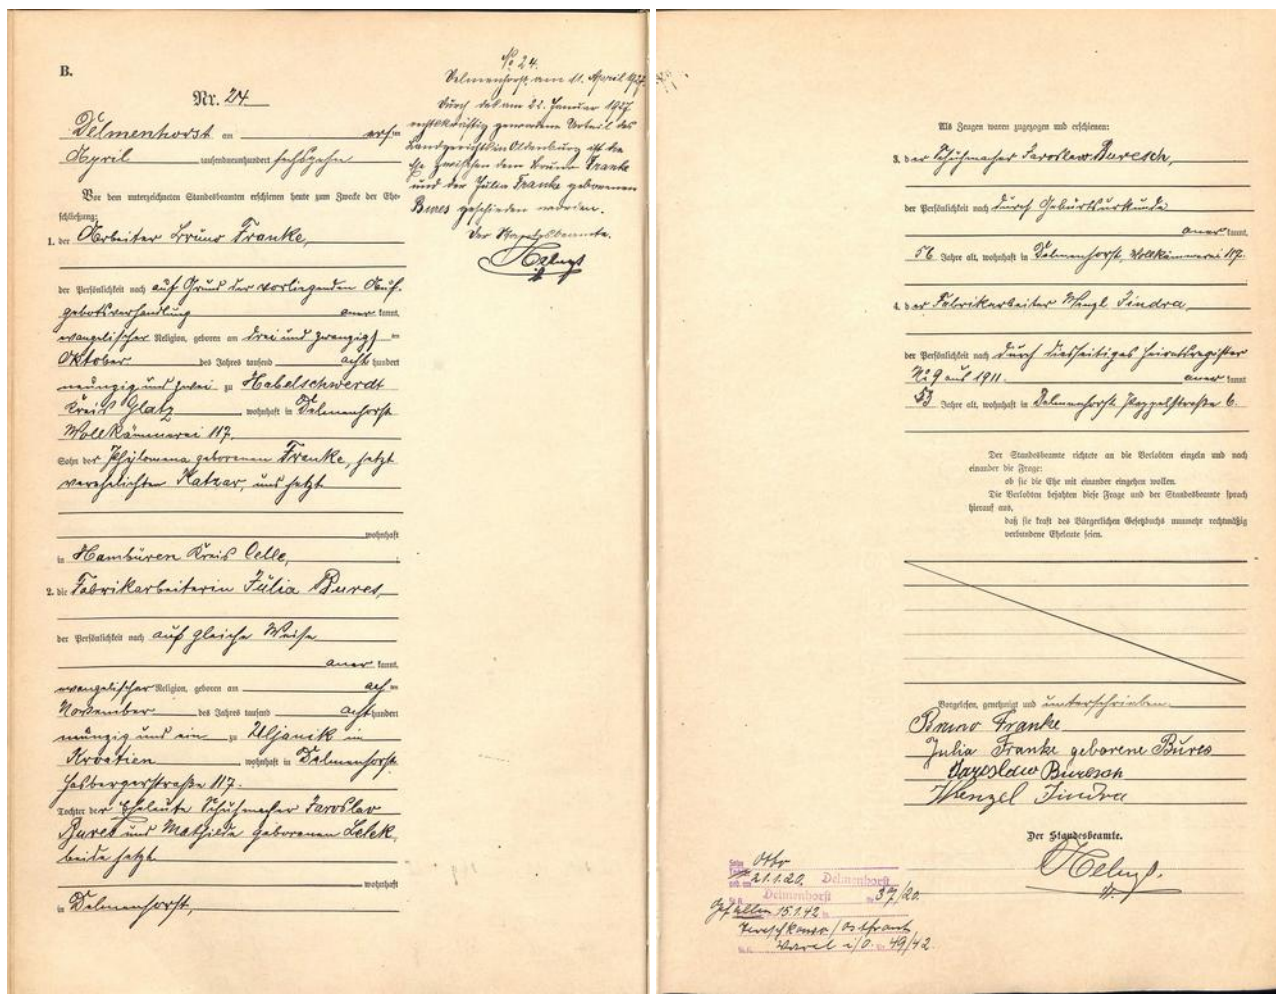 B.
Nr. 24
Delmenhorst am ersten
April tausendneunhundert sechszehn
Vor dem unterzeichneten Standesbeamten erschienen heute zum Zwecke der Ehe-
schließung:
1. der Arbeiter Bruno Franke,
der Persönlichkeit nach auf Grund der vorliegenden Auf-
gebotsverhandlung anerkannt,
evangelischer Religion, geboren am drei und zwanzigsten
Oktober des Jahres tausend acht hundert
neunzig und zwei zu Habelschwerdt
Kreis Glatz, wohnhaft in Delmenhorst
Wollkämmerei 117.
Sohn der Phylomena geborenen Franke, jetzt
verehelichten Katzar, und jetzt
wohnhaft
in Hambüren Kreis Celle,
2. die Fabrikarbeiterin Julia Bures,
der Persönlichkeit nach auf gleiche Weise
anerkannt,
evangelischer Religion, geboren am achten
November des Jahres tausend acht hundert
neunzig und ein zu Uljanik in
Kroatien, wohnhaft in Delmenhorst
Hasbergerstraße 117.
Tochter der Eheleute Schuhmacher Jaroslav
Bures und Mathilde geborenen Lelek,
beide jetzt
wohnhaft
in Delmenhorst,
No 24.
Delmenhorst, am 11. April 1927.
Durch das am 22. Januar 1927
rechtskräftig gewordene Urteil des
Landgerichts in Oldenburg ist die
Ehe zwischen dem Bruno Franke
und der Julia Franke geborenen
Bures geschieden worden.
Der Standesbeamte.
Als Zeugen waren zugezogen und erschienen:
3. der Schuhmacher Jaroslaw Buresch,
der Persönlichkeit nach durch Geburtsurkunde
anerkannt,
56 Jahre alt, wohnhaft in Delmenhorst, Wollkämmerei 117.
4. der Fabrikarbeiter Wenzl Jindra,
der Persönlichkeit nach durch diesseitiges Heiratsregister
No 9 aus 1911. anerkannt
53 Jahre alt, wohnhaft in Delmenhorst Pappelstraße 6.
Der Standesbeamte richtete an die Verlobten einzeln und nach
einander die Frage:
ob sie die Ehe mit einander eingehen wollen.
Die Verlobten bejahten diese Frage und der Standesbeamte sprach
hierauf aus,
daß sie kraft des Bürgerlichen Gesetzbuchs nunmehr rechtmäßig
verbundene Eheleute seien.
Vorgelesen, genehmigt und unterschrieben
Bruno Franke
Julia Franke geborene Bures
Jaroslaw Buresch
Wenzel Jindra
Der Standesbeamte.
Otto
21.1.20. Delmenhorst
Delmenhorst 37/20.
Gefallen 15.1.42
/Ostfront
Varel i/O. 49/42.